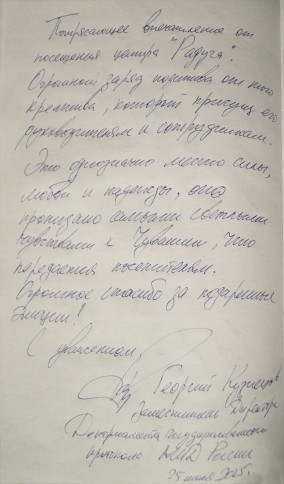 Потрясающее впечатление от
посещения центра "Радуга".
Огромный заряд позитива от того
креатива, который присущ его
руководителям и сотрудникам.
Это однозначно место силы,
любви и надежды, оно
пронизано самыми светлыми
чувствами к Чувашии, что
передается посетителям.
Огромное спасибо за подаренные
эмоции!
С уважением,
Георгий Кузнецов
Заместитель Директора
Департамента государственного
протокола МИД России
25 июня 2025г.